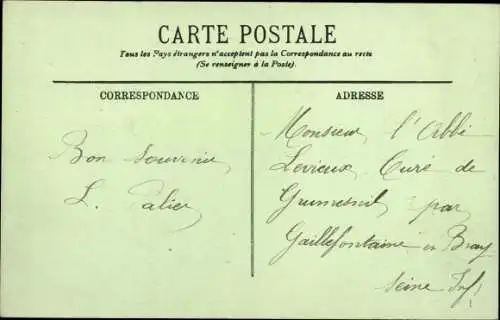 CARTE POSTALE
Tous les Pays étrangers n'acceptent pas la Correspondance au recto
(Se renseigner à la Poste).
CORRESPONDANCE
ADRESSE
Bon souvenir
L. Palier
Monsieur l'Abbé
Levieux Curé de
Grumesnil par
Gaillefontaine en Bray
Seine Inf.